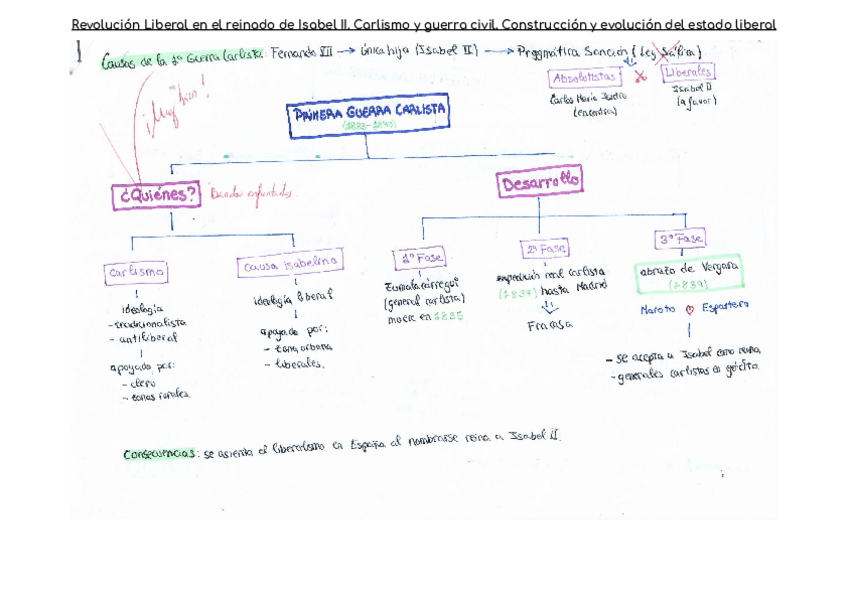 Revolución Liberal en el reinado de Isabel II. Carlismo y guerra civil. Construcción y evolución del estado liberal
Causas de la 1ª Guerra Carlista: Fernando VII → única hija (Isabel II) → Pragmática Sanción (Ley Sálica)
Absolutistas
Carlos María Isidro
(en contra)
Liberales
Isabel II
(a favor)
¡Muy bien!
PRIMERA GUERRA CARLISTA
(1833-1840)
¿Quiénes?
Bandos enfrentados
Desarrollo
carlismo
ideología
- tradicionalista
- antiliberal
apoyado por:
- clero
- zonas rurales.
causa isabelina
ideología liberal
apoyada por:
- zona urbana
- liberales.
1ª Fase
Zumalacárregui
(general carlista)
muere en 1835
2ª Fase
expedición real carlista
(1837) hasta Madrid
Fracasa
3ª Fase
abrazo de Vergara
(1839)
Maroto Espartero
- se acepta a Isabel como reina
- generales carlistas en ejército.
Consecuencias: se asienta el liberalismo en España al nombrarse reina a Isabel II.